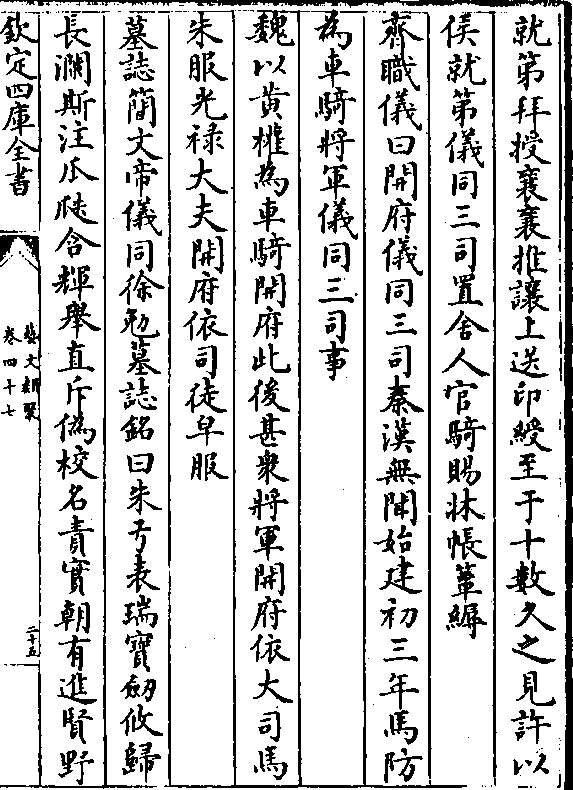 就第拜授襄襄推讓上送印綬至于十數久之見許以
侯就第儀同三司置舍人官騎賜牀帳簟縟
齊職儀曰開府儀同三司秦漢無聞始建初三年馬防
為車騎將軍儀同三司事
魏以黄權為車騎開府此後甚衆將軍開府依大司馬
朱服光禄大夫開府依司徒皁服
墓誌簡文帝儀同徐勉墓誌銘曰朱方表瑞寶劒攸歸
長瀾斯注瓜瓞含輝舉直斥偽校名責實朝有進賢野
欽定四庫全書
藝文類聚
卷四十七
二十五